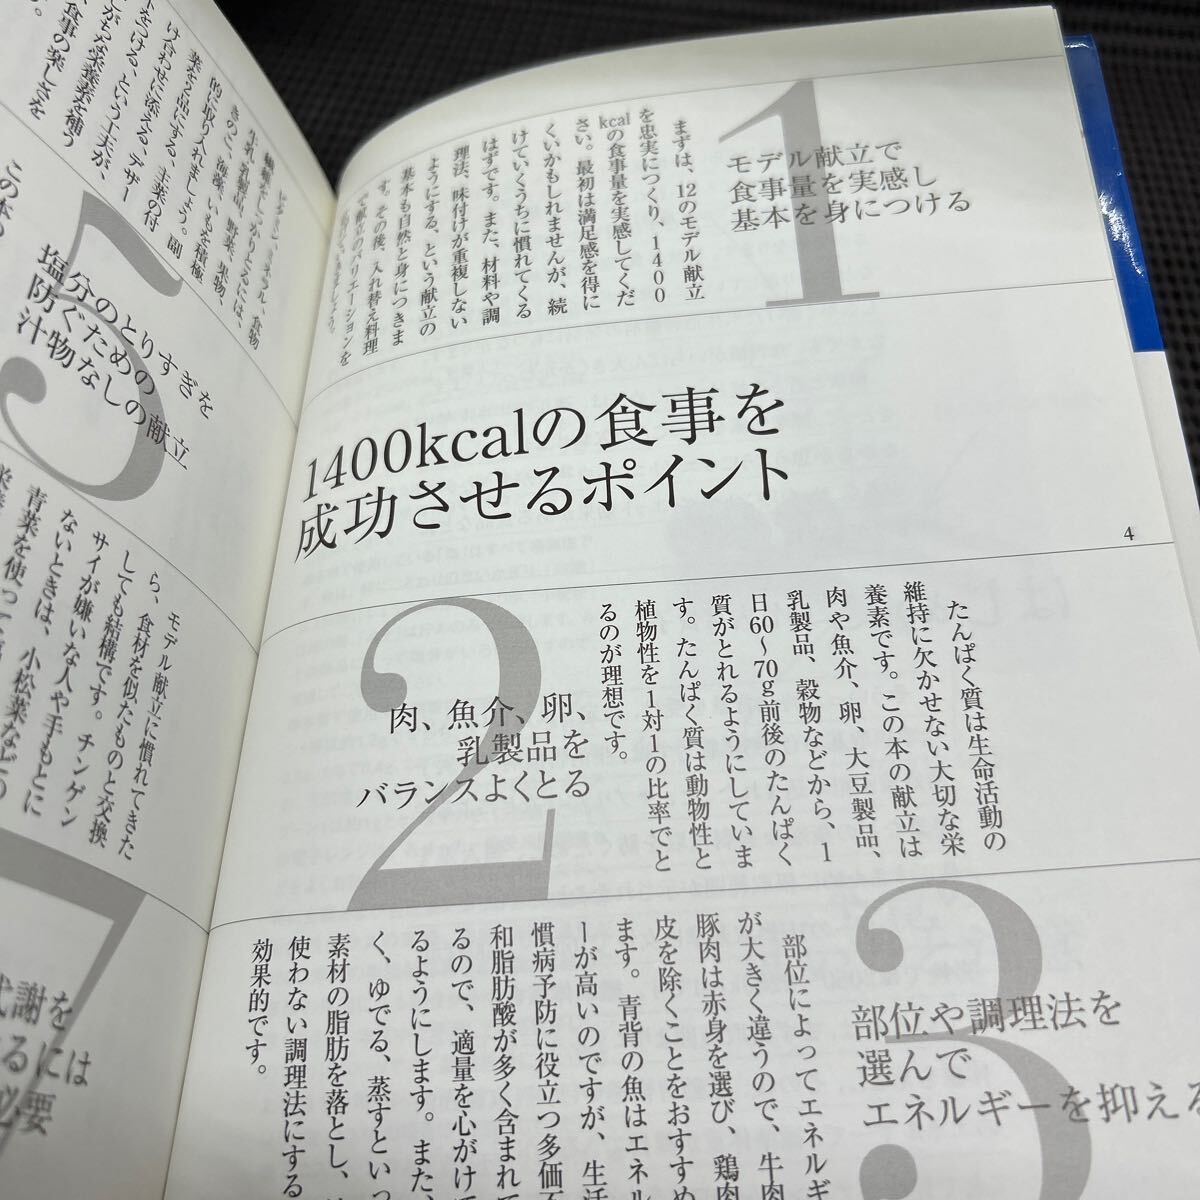 1400kcalの食事を
成功させるポイント
4
1
モデル献立で
食事量を実感し
基本を身につける
まずは、12のモデル献立
を忠実につくり、1400
kcalの食事量を実感してくだ
さい。最初は満足感を得に
くいかもしれませんが、続
けていくうちに慣れてくる
はずです。また、材料や調
理法、味付けが重複しない
ようにする、という献立の
基本も自然と身につきま
す。その後、入れ替え料理
で献立のバリエーションを
2
肉、魚介、卵、
乳製品を
バランスよくとる
たんぱく質は生命活動の
維持に欠かせない大切な栄
養素です。この本の献立は
肉や魚介、卵、大豆製品、
乳製品、穀物などから、1
日60〜70g前後のたんぱく
質がとれるようにしていま
す。たんぱく質は動物性と
植物性を1対1の比率でと
るのが理想です。
3
部位や調理法を
選んで
エネルギーを抑え
部位によってエネルギ
が大きく違うので、牛肉
豚肉は赤身を選び、鶏肉
皮を除くことをおすすめ
ます。青背の魚はエネル
ーが高いのですが、生活
慣病予防に役立つ多価不
和脂肪酸が多く含まれて
るので、適量を心がけて
るようにします。また、
く、ゆでる、蒸すといっ
素材の脂肪を落とし、
使わない調理法にする
効果的です。
きのこ、海藻、いもを積極
的に取り入れましょう。副
菜を2品にする、主菜の付
け合わせに添える、デザー
トをつける、という工夫が、
5
塩分のとりすぎを
防ぐための
汁物なしの献立
モデル献立に慣れてきた
ら、食材を似たものと交換
しても結構です。チンゲン
サイが嫌いな人や手もとに
ないときは、小松菜などの
7
謝を
るには
必要